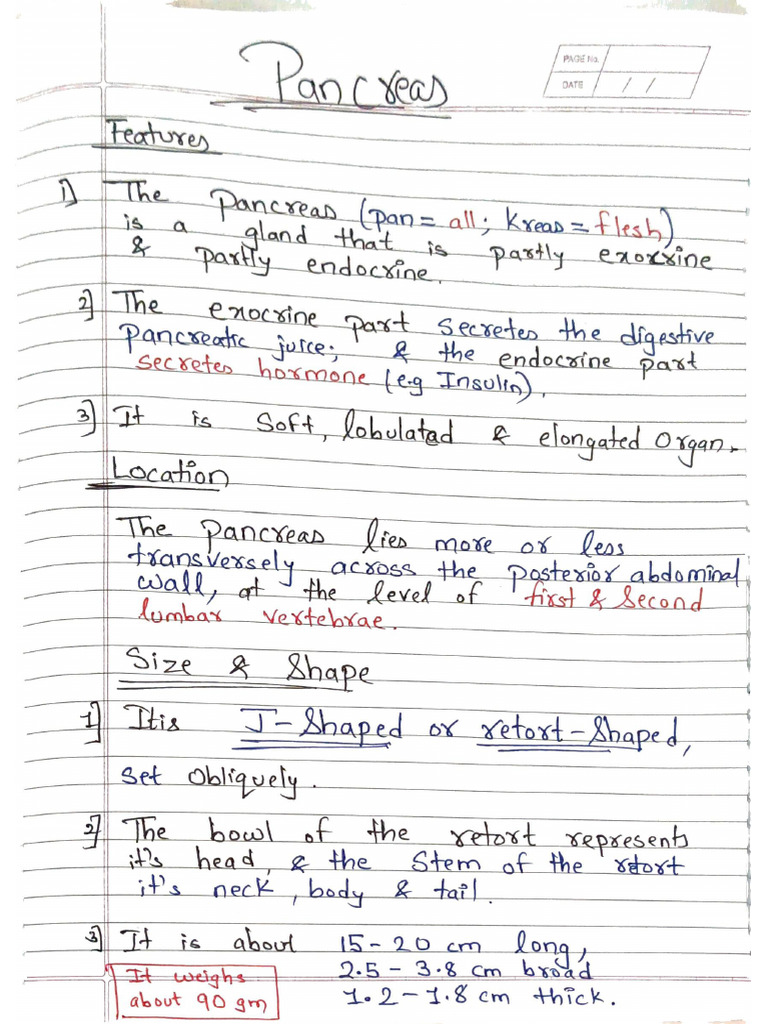 Pancreas
PAGE No.
DATE / /
Features
1) The Pancreas (pan = all; Kreas = flesh)
is a gland that is partly exocrine
& partly endocrine.
2) The exocrine part secretes the digestive
Pancreatic juice; & the endocrine part
secretes hormone (e.g Insulin).
3) It is soft, lobulated & elongated organ.
Location
The pancreas lies more or less
transversely across the posterior abdominal
wall, at the level of first & second
lumbar vertebrae.
Size & Shape
1) It is J-Shaped or retort-Shaped,
set obliquely.
2) The bowl of the retort represents
it's head, & the stem of the retort
it's neck, body & tail.
3) It is about 15-20 cm long,
2.5 - 3.8 cm broad
1.2 - 1.8 cm thick.
It weighs
about 90 gm